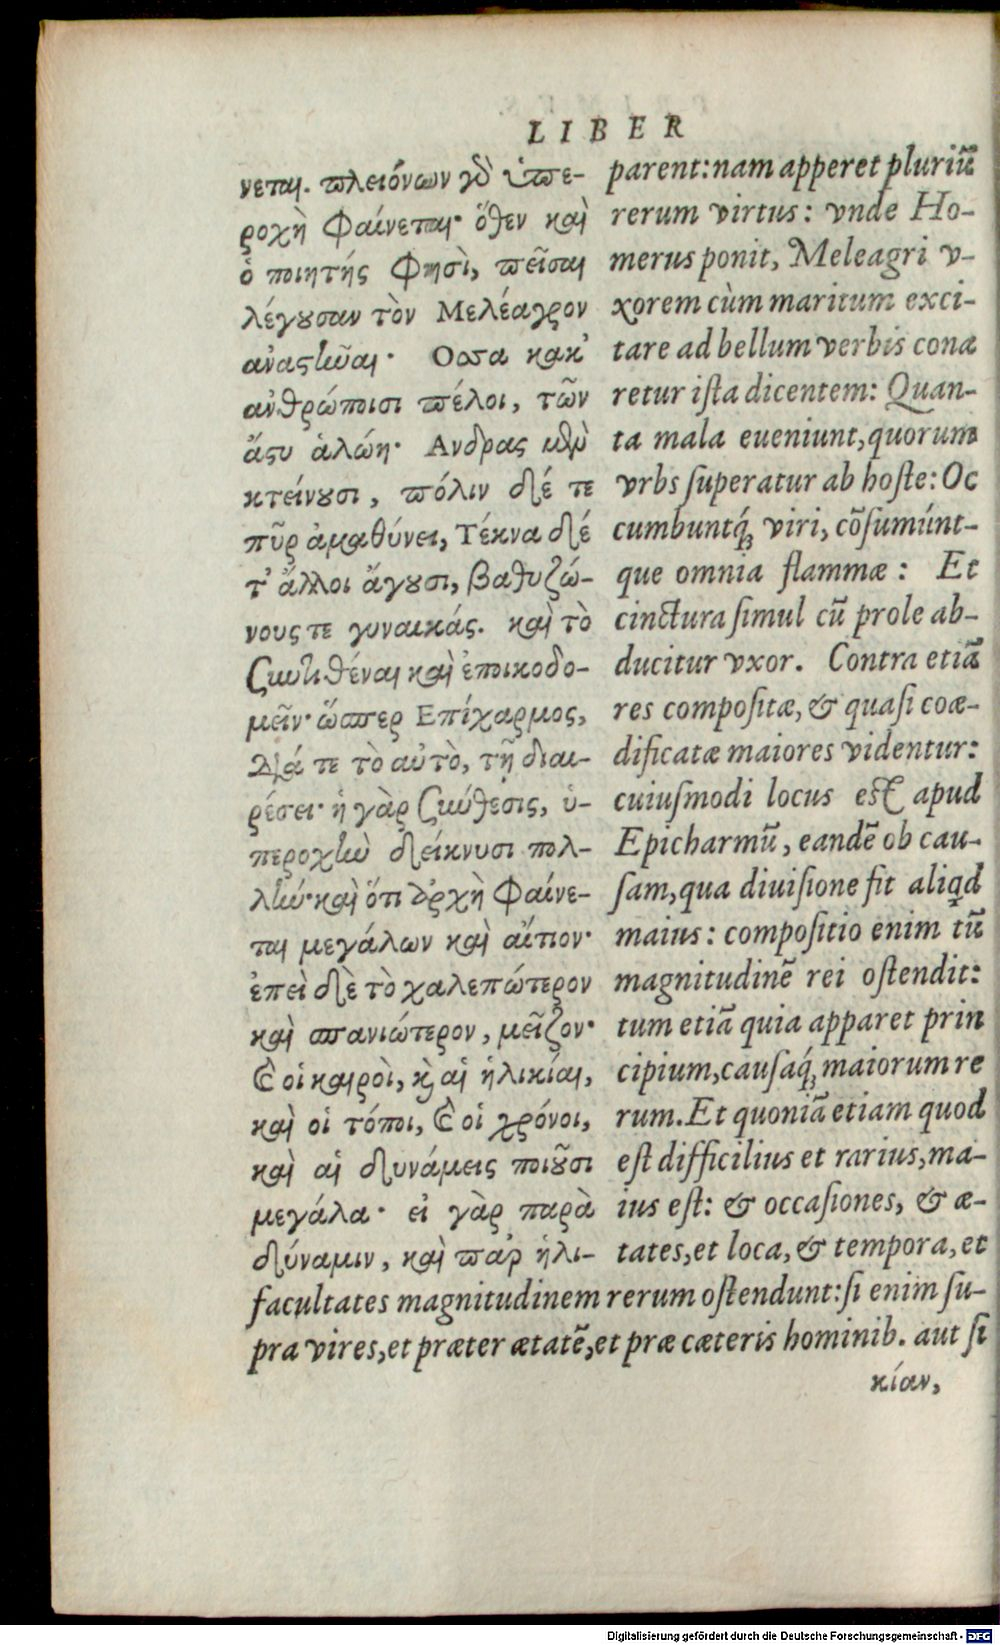 LIBER
νεται. πλειόνων γὸ ὑπε-
ροχὴ φαίνεται· ὅθεν καὶ
ὁ ποιητής φησὶ, πεῖσαι
λέγουσαν τὸν Μελέαγρον
ἀναστῆναι· Οσσα κακ'
ἀνθρώποισι πέλοι, τῶν
ἄστυ ἁλώῃ· Ανδρας μὲν
κτείνουσι, πόλιν δέ τε
πῦρ ἀμαθύνει, Τέκνα δέ
τ' ἄλλοι ἄγουσι, βαθυζώ-
νους τε γυναικάς. καὶ τὸ
συντιθέναι καὶ ἐποικοδο-
μεῖν· ὥσπερ Επίχαρμος,
Διά τε τὸ αὐτὸ, τῇ διαι-
ρέσει· ἡ γὰρ σύνθεσις, ὑ-
περοχὴν δείκνυσι πολ-
λήν· καὶ ὅτι ἀρχὴ φαίνε-
ται μεγάλων καὶ αἴτιον·
ἐπεὶ δὲ τὸ χαλεπώτερον
καὶ σπανιώτερον, μεῖζον·
καὶ οἱ καιροὶ, καὶ αἱ ἡλικίαι,
καὶ οἱ τόποι, καὶ οἱ χρόνοι,
καὶ αἱ δυνάμεις ποιοῦσι
μεγάλα· εἰ γὰρ παρὰ
δύναμιν, καὶ παρ ἡλι-
parent: nam apperet pluriũ
rerum virtus: vnde Ho-
merus ponit, Meleagri v-
xorem cùm maritum exci-
tare ad bellum verbis cona
retur ista dicentem: Quan-
ta mala eueniunt, quorum
vrbs superatur ab hoste: Oc
cumbuntq́; viri, cõsumúnt-
que omnia flammæ: Et
cinctura simul cũ prole ab-
ducitur vxor. Contra etiã
res compositæ, & quasi coæ-
dificatæ maiores videntur:
cuiusmodi locus est apud
Epicharmũ, eandẽ ob cau-
sam, qua diuisione fit aliqd
maius: compositio enim tũ
magnitudinẽ rei ostendit:
tum etiã quia apparet prin
cipium, causaq́; maiorum re
rum. Et quoniã etiam quod
est difficilius et rarius, ma-
ius est: & occasiones, & æ-
tates, et loca, & tempora, et
facultates magnitudinem rerum ostendunt: si enim su-
pra vires, et præter ætatẽ, et præ cæteris hominib. aut si
κίαν,
Digitalisierung gefördert durch die Deutsche Forschungsgemeinschaft - DFG